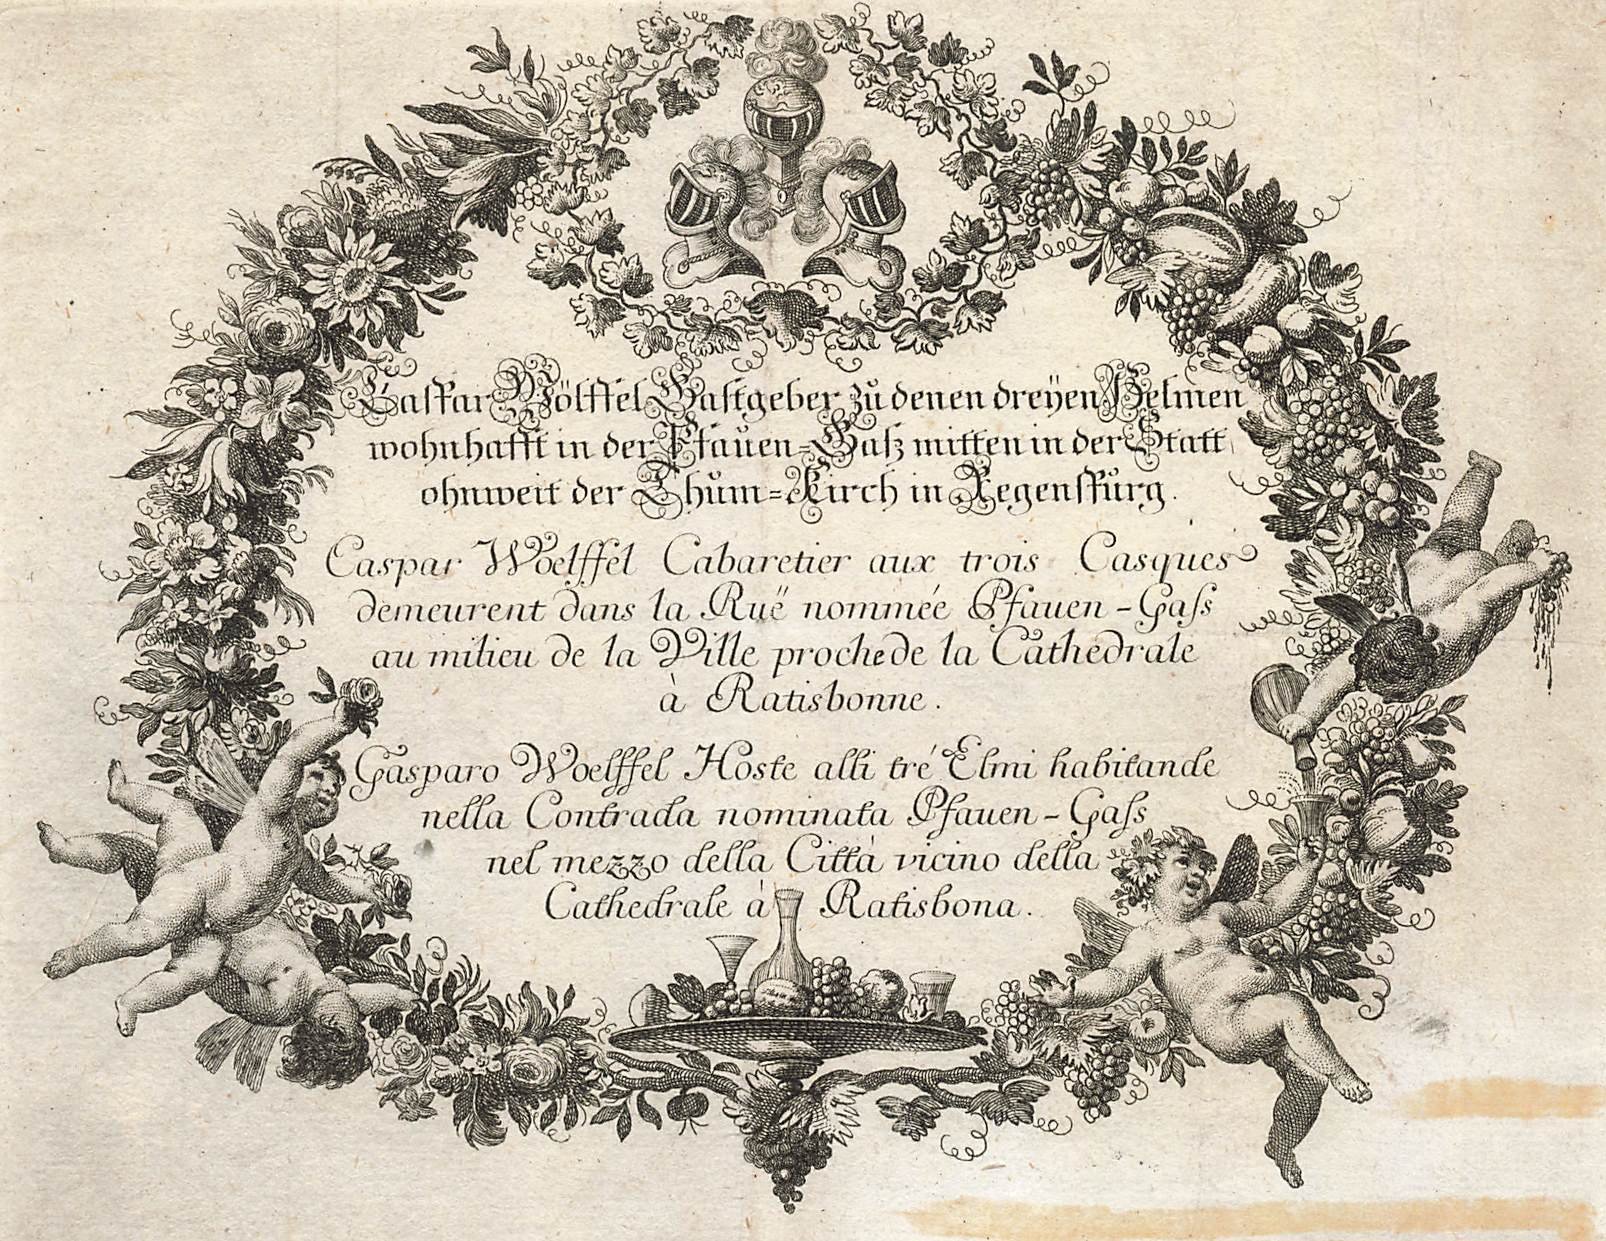 Caspar Wölffel Gastgeber zu denen dreÿen Helmen
wohnhafft in der Pfauen-Gaß mitten in der Statt
ohnweit der Thum=Kirch in Regenspurg.
Caspar Woelffel Cabaretier aux trois Casques
demeurent dans la Ruë nommée Pfauen-Gaſs
au milieu de la Ville proche de la Cathedrale
à Ratisbonne.
Gasparo Woelffel Hoste alli tré Elmi habitande
nella Contrada nominata Pfauen-Gaſs
nel mezzo della Città vicino della
Cathedrale à Ratisbona.